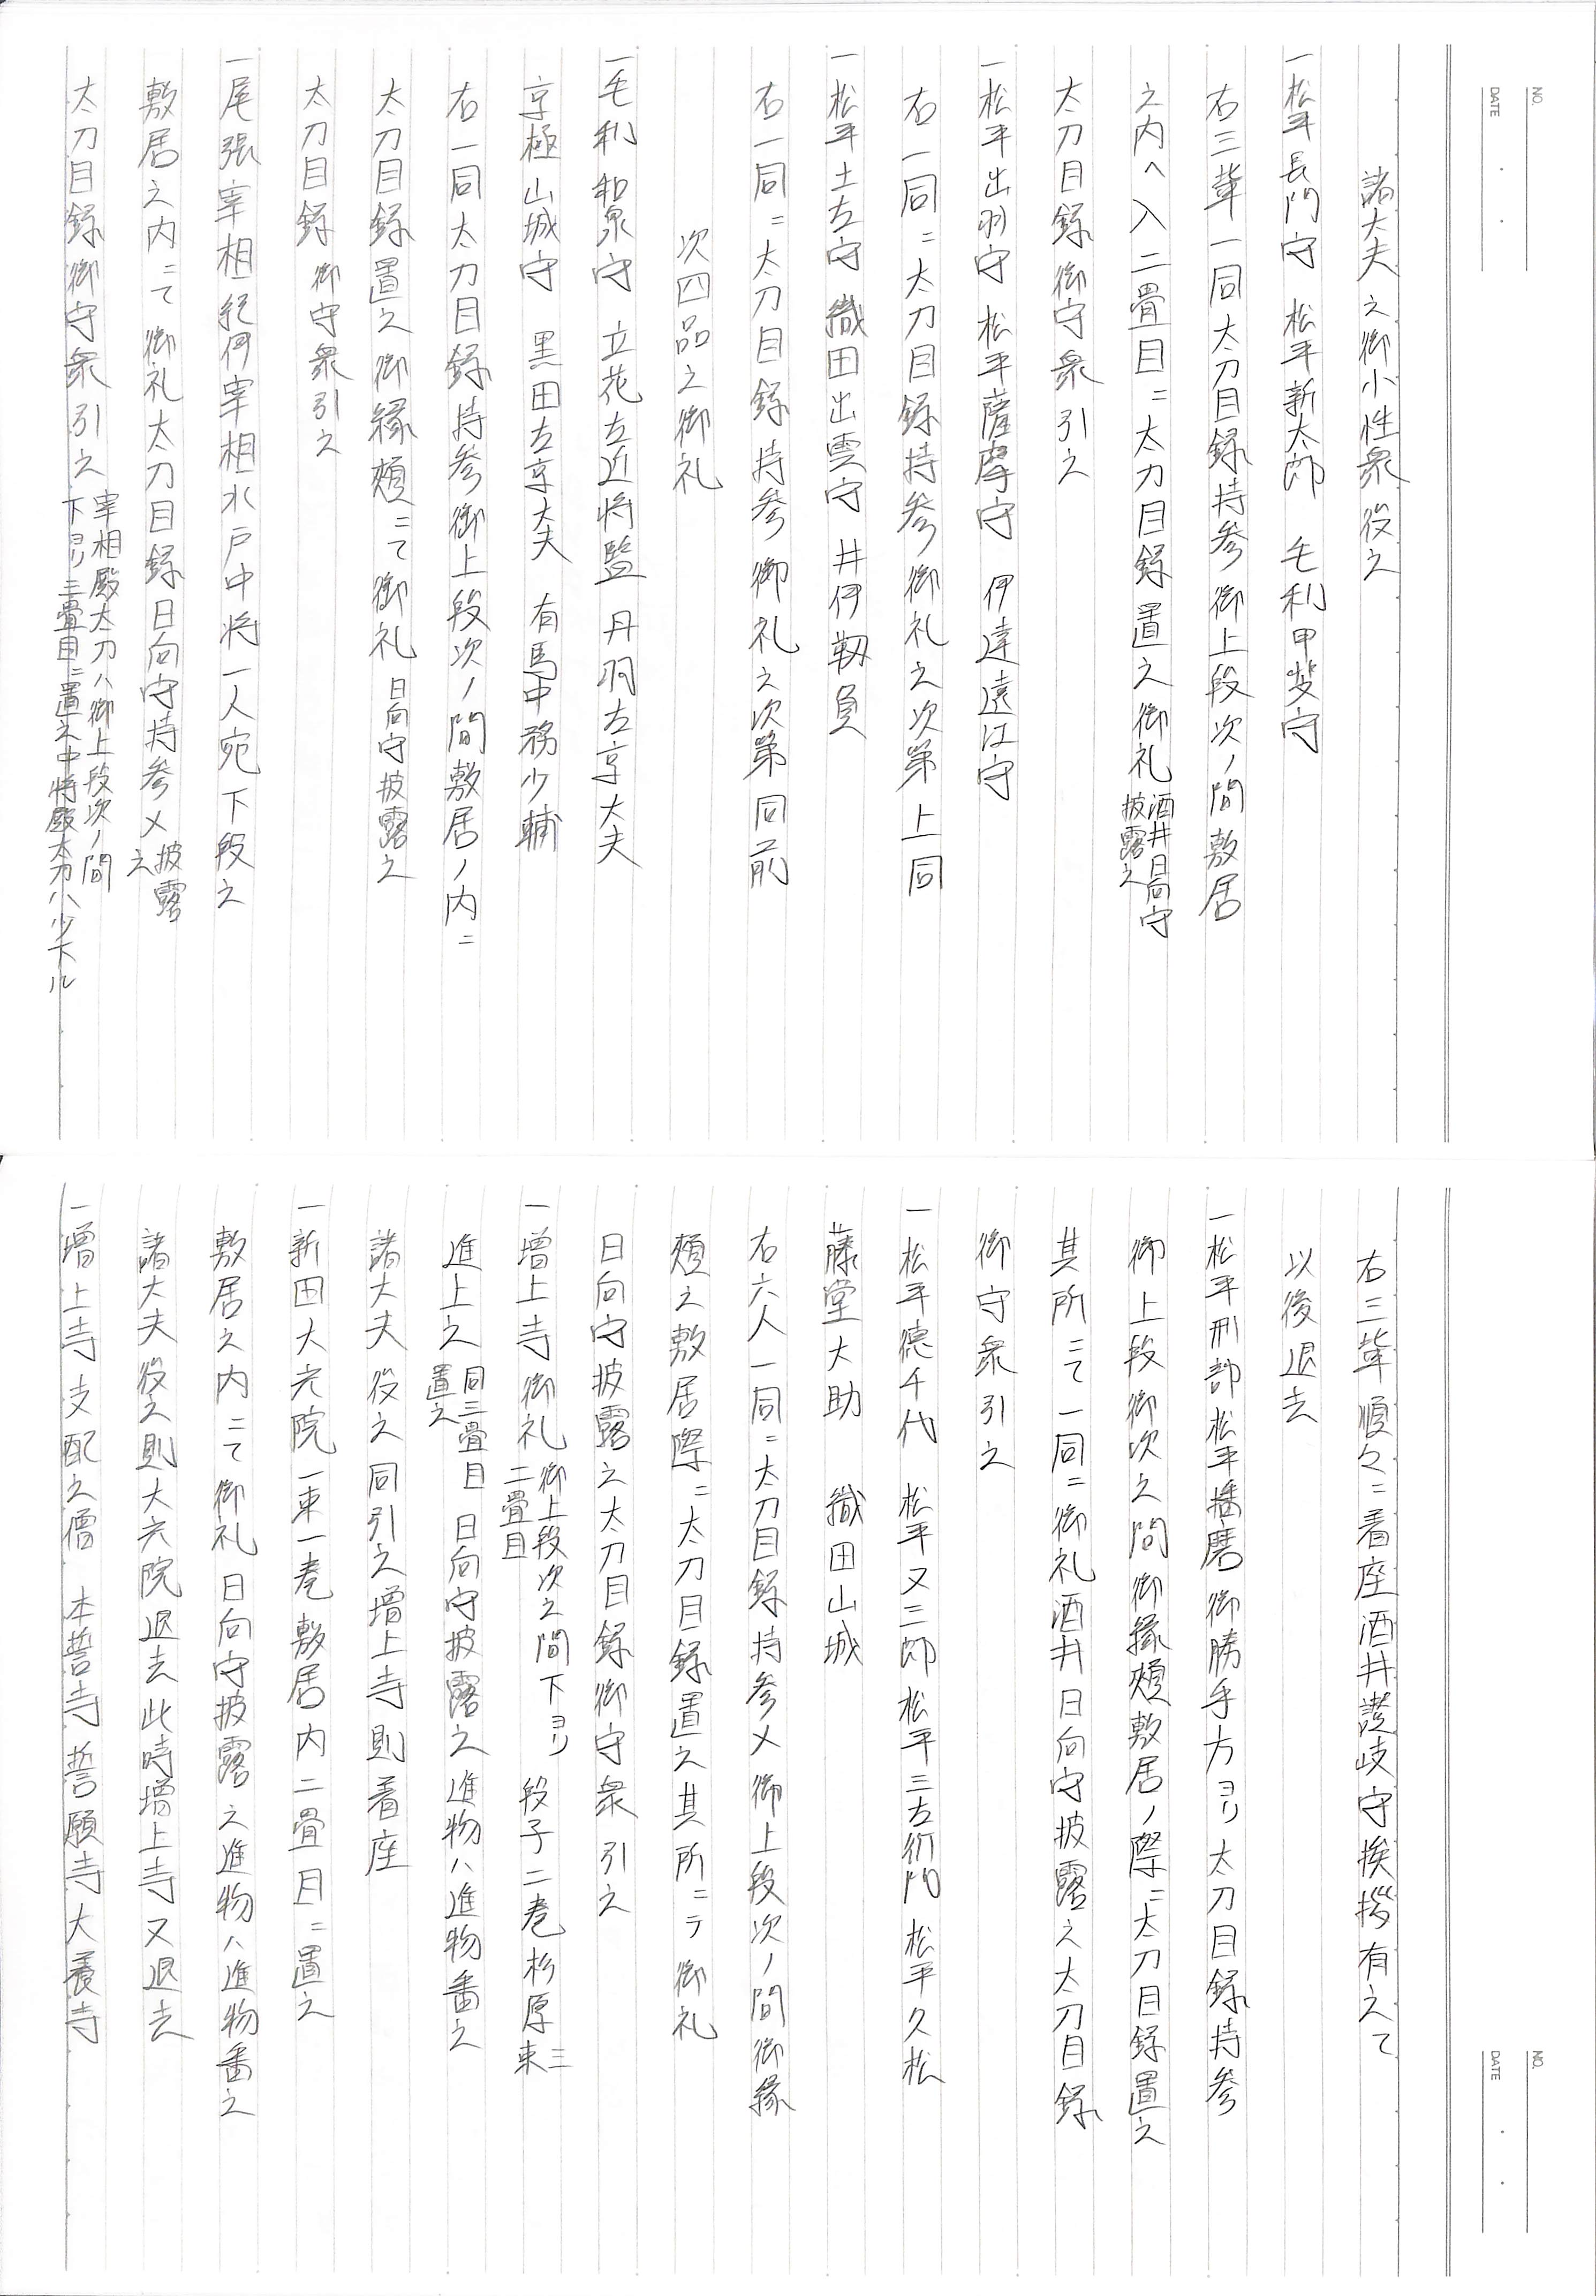 NO.
DATE
諸大夫之御小性衆役之
一松平長門守 松平新太郎 毛利甲斐守
右三輩一同太刀目録持参御上段次ノ間敷居
之内へ入二畳目ニ太刀目録置之御礼 酒井日向守
披露之
太刀目録御守衆引之
一松平出羽守 松平薩摩守 伊達遠江守
右一同ニ太刀目録持参御礼之次第上同
一松平土左守 織田出雲守 井伊靱負
右一同ニ太刀目録持参御礼之次第同前
次四品之御礼
一毛利和泉守 立花左近将監 丹羽左京大夫
京極山城守 黒田左京大夫 有馬中務少輔
右一同太刀目録持参御上段次ノ間敷居ノ内ニ
太刀目録置之御縁頬ニて御礼 日向守披露之
太刀目録御守衆引之
一尾張宰相紀伊宰相水戸中将一人宛下段之
敷居之内ニて御礼太刀目録日向守持参〆披露
之
太刀目録御守衆引之 宰相殿太刀ハ御上段次ノ間
下ヨリ三畳目ニ置之中将殿太刀ハ少下ル
NO.
DATE
右三輩順々ニ着座酒井讃岐守挨拶有之て
以後退去
一松平刑部松平播磨御勝手方ヨリ太刀目録持参
御上段御次之間御縁頬敷居ノ際ニ太刀目録置之
其所ニて一同ニ御礼酒井日向守披露之太刀目録
御守衆引之
一松平徳千代 松平又三郎松平三左衛門 松平久松
藤堂大助 織田山城
右六人一同ニ太刀目録持参〆御上段次ノ間御縁
頬之敷居際ニ太刀目録置之其所ニテ御礼
日向守披露之太刀目録御守衆引之
一増上寺御礼 御上段次之間下ヨリ
二畳目 段子二巻杉原三
束
進上之 同三畳目
置之 日向守披露之進物ハ進物番之
諸大夫役之同引之増上寺則着座
一新田大光院一束一巻敷居内二畳目ニ置之
敷居之内ニて御礼日向守披露之進物ハ進物番之
諸大夫役之則大光院退去此時増上寺又退去
一増上寺支配之僧 本誓寺誓願寺大養寺